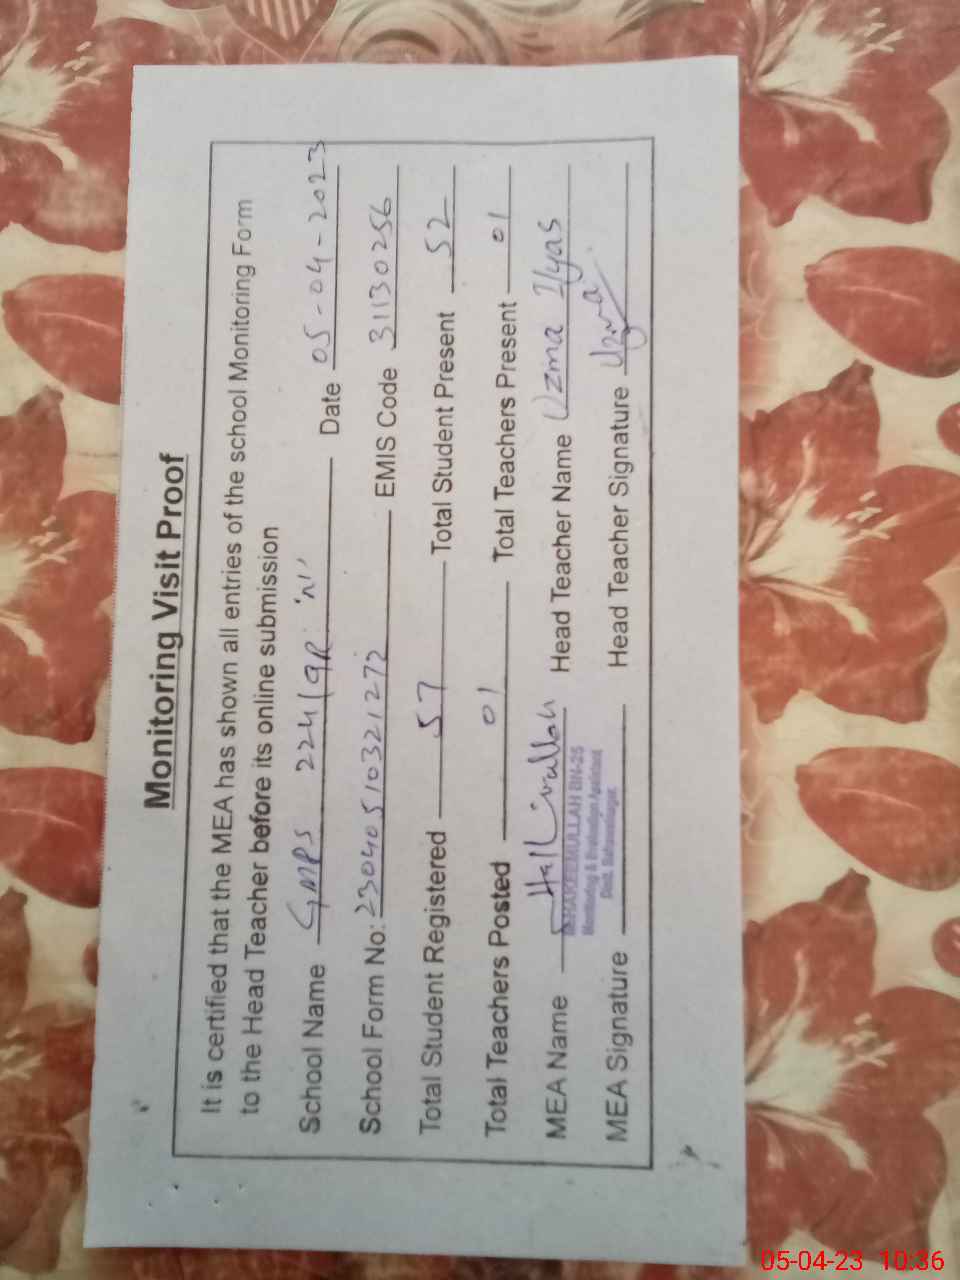 Monitoring Visit Proof
It is certified that the MEA has shown all entries of the school Monitoring Form
to the Head Teacher before its online submission
School Name GMPS 224/9R 'N' Date 05-04-2023
School Form No: 23040510321272 EMIS Code 31130256
Total Student Registered 57 Total Student Present 52
Total Teachers Posted 01 Total Teachers Present 01
MEA Name Head Teacher Name Uzma Ilyas
HAKEEMULLAH BN-25
Monitoring & Evaluation Assistant
Distt. Bahawalnagar
MEA Signature Head Teacher Signature Uzma
05-04-23 10:36